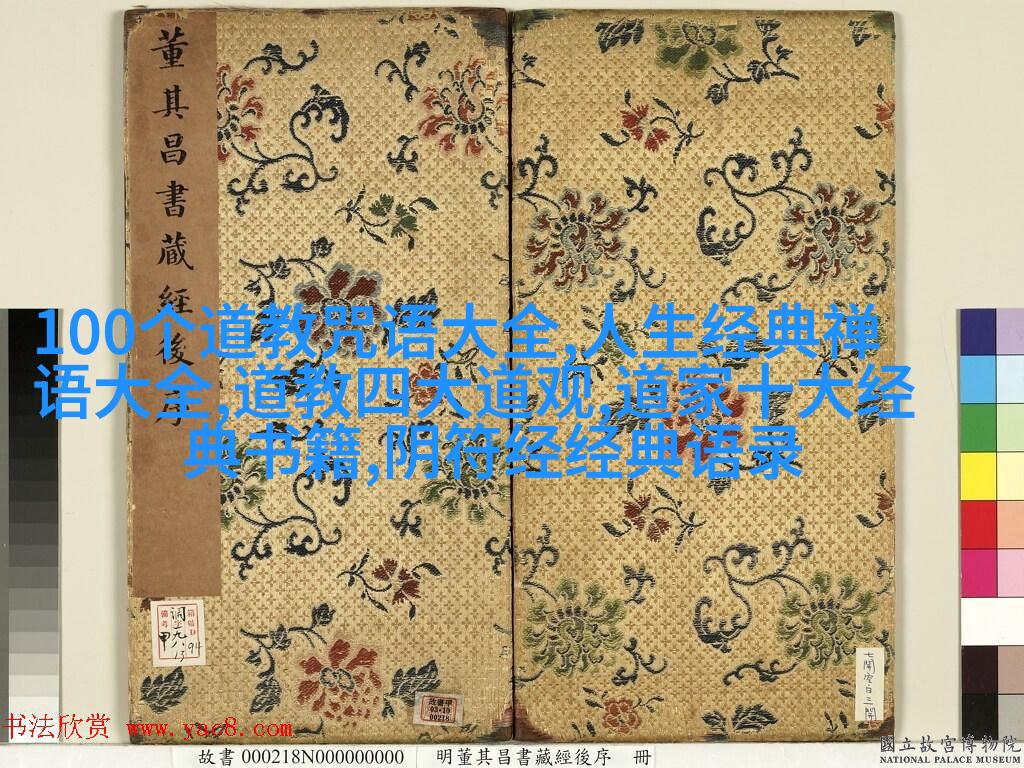 董其昌書藏經後序
100个道教咒语大全,人生经典禅
语大全,道教四大道观,道家十大经
典书籍,阴符经经典语录
箱號D
備考
甲
94
13
故書甲
03-10
00218
七開空白三開
书法欣赏 www.yac8.com
國立故宮博物院
NATIONAL PALACE MUSEUM
故書 000218N000000000
明董其昌書藏經後序 冊